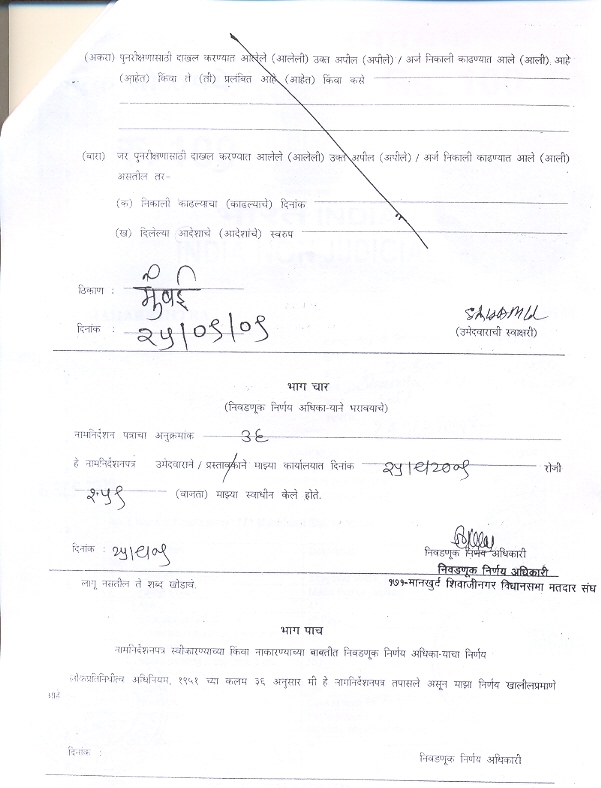 (अकरा) पुनरीक्षणासाठी दाखल करण्यात आलेले (आलेली) उक्त अपील (अपीले) / अर्ज निकाली काढण्यात आले (आली). आहे
(आहेत) किंवा ते (ती) प्रलंबित आहे (आहेत) किंवा कसे
(बारा) जर पुनरीक्षणासाठी दाखल करण्यात आलेले (आलेली) उक्त अपील (अपीले) / अर्ज निकाली काढण्यात आले (आली)
असतील तर-
(क) निकाली काढल्याचा (काढल्याचे) दिनांक
(ख) दिलेल्या आदेशाचे (आदेशांचे) स्वरुप
ठिकाण : मुंबई
दिनांक : २५/०९/०९
(उमेदवाराची स्वाक्षरी)
भाग चार
(निवडणूक निर्णय अधिका-याने भरावयाचे)
नामनिर्देशन पत्राचा अनुक्रमांक ३६
हे नामनिर्देशनपत्र उमेदवाराने / प्रस्तावकाने माझ्या कार्यालयात दिनांक २५/९/२००९ रोजी
२.५९ (वाजता) माझ्या स्वाधीन केले होते.
दिनांक : २५/९/०९
निवडणूक निर्णय अधिकारी
निवडणूक निर्णय अधिकारी
लागू नसतील ते शब्द खोडावे.
१७१-मानखुर्द शिवाजीनगर विधानसभा मतदार संघ
भाग पाच
नामनिर्देशनपत्र स्वीकारण्याच्या किंवा नाकारण्याच्या बाबतीत निवडणूक निर्णय अधिका-याचा निर्णय
लोकप्रतिनिधीत्व अधिनियम, १९५१ च्या कलम ३६ अनुसार मी हे नामनिर्देशनपत्र तपासले असून माझा निर्णय खालीलप्रमाणे
आहे
दिनांक :
निवडणूक निर्णय अधिकारी